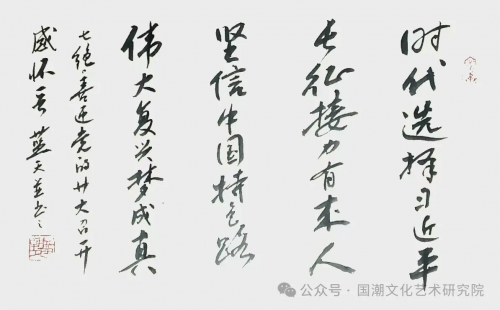 时代选择习近平
长征接力有来人
坚信中国特色路
伟大复兴梦成真
七绝·喜迎党的廿大召开
感怀
公众号·国潮文化艺术研究院